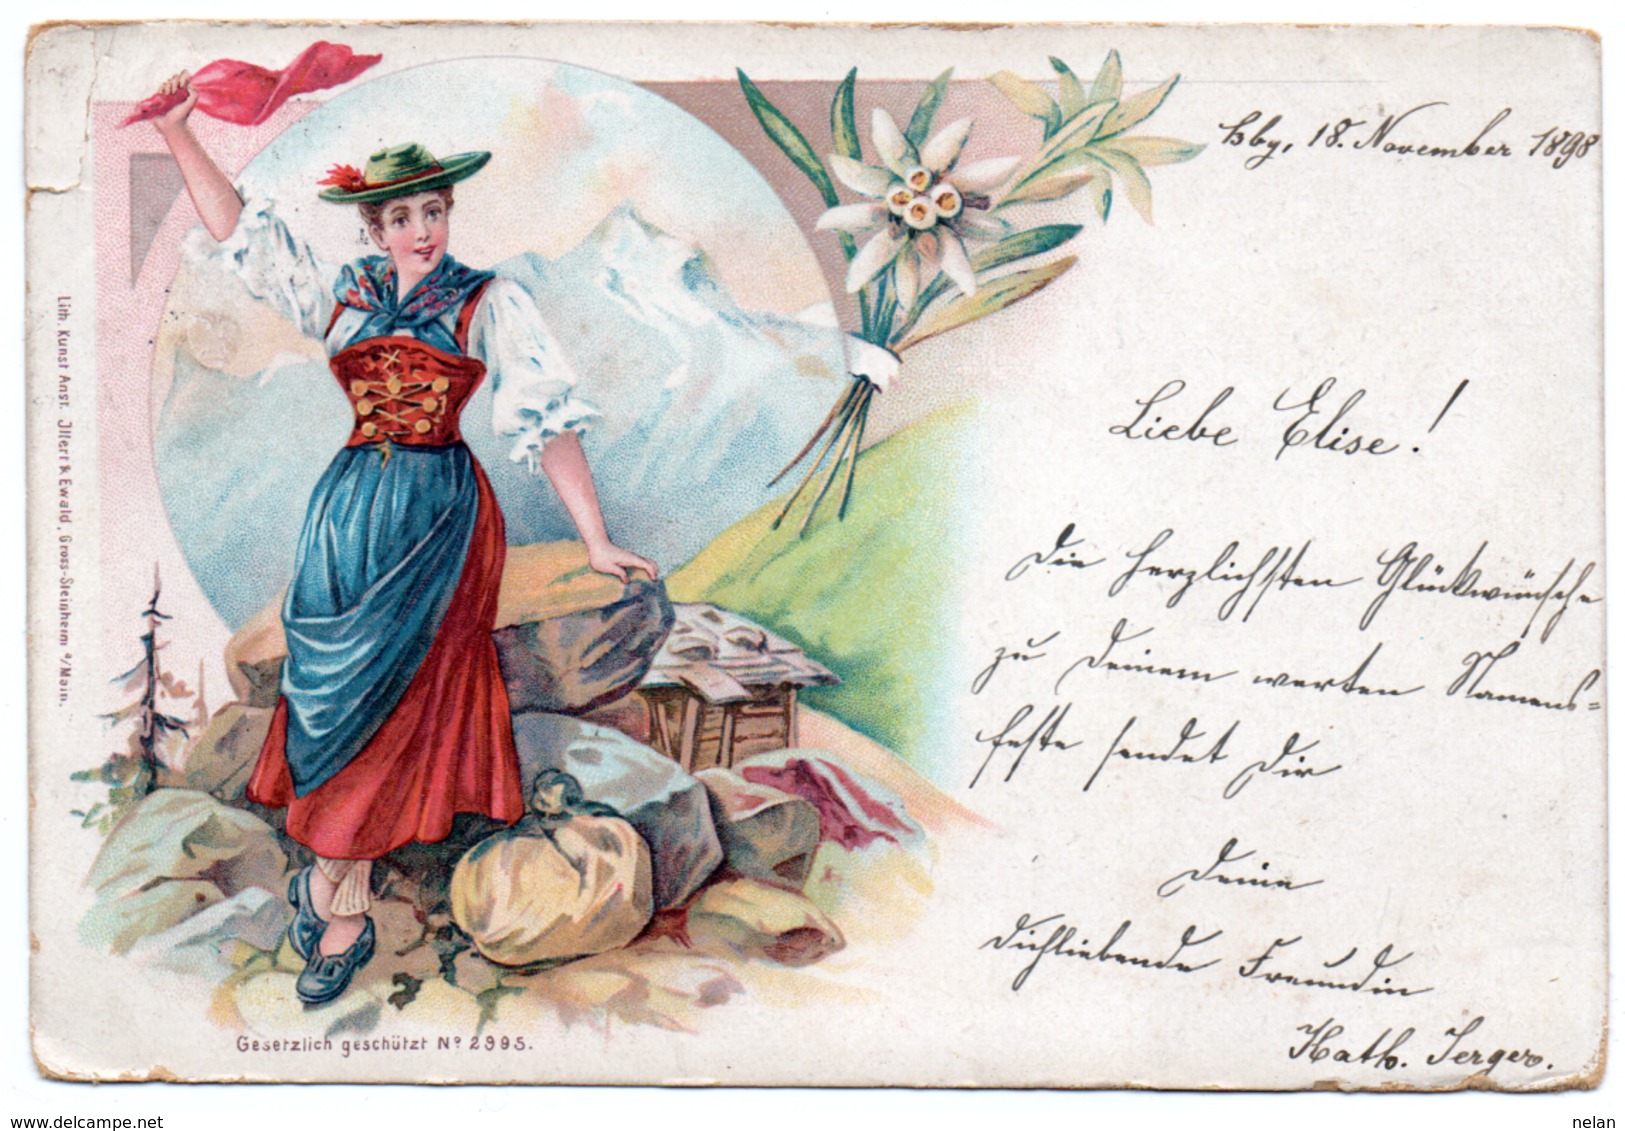 Hbg, 18. November 1898
Liebe Elise!
Die herzlichsten Glückwünsche
zu Deinem werten Namens=
feste sendet Dir
Deine
Dichliebende Freundin
Kath. Jerger.
Lith. Kunst Anst. Illert & Ewald, Gross-Steinheim a/Main.
Gesetzlich geschützt No 2995.
nelan